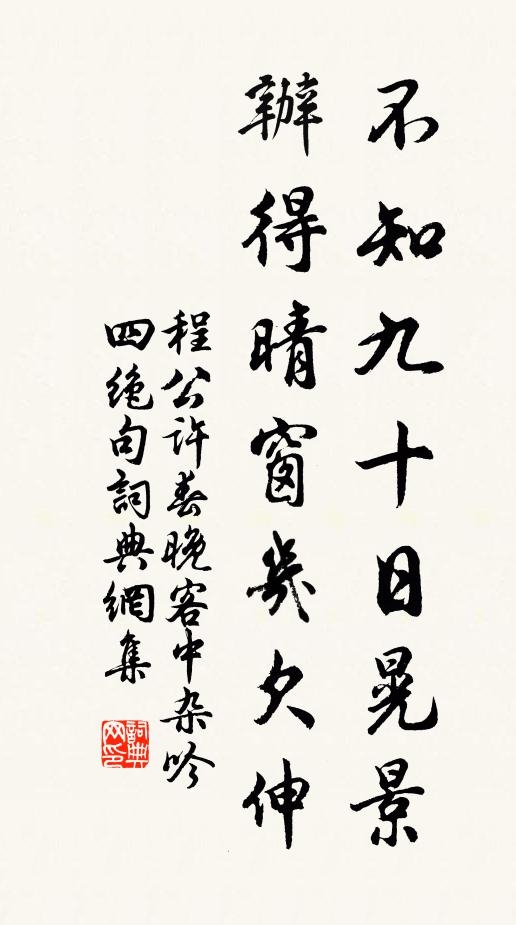 不知九十日晃景
辦得晴窗幾欠伸
程公許春晚客中杂吟
四绝句詞典網集
詞典網印